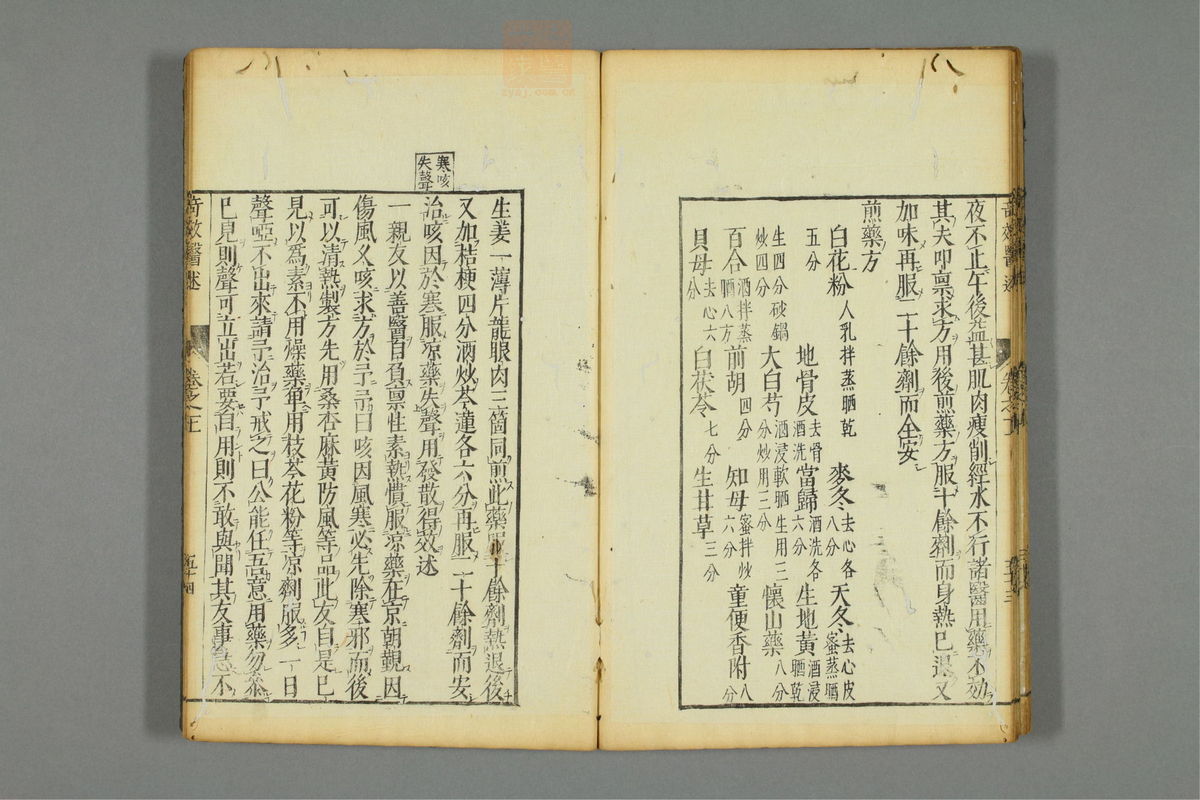 夜不止午後益甚肌肉瘦削經水不行諸醫用藥不効
其夫叩禀求方用後煎藥方服十餘劑而身熱已退又
加味再服二十餘劑而全安
煎藥方
白花粉人乳拌蒸晒乾 麥冬去心各八分 天冬去心皮蜜蒸晒
五分 地骨皮去骨酒洗 當歸酒洗各六分 生地黃酒浸晒乾
生四分砂鍋炒四分 大白芍酒浸軟晒生用三分炒用三分 懷山藥八分
百合酒拌蒸晒八分 前胡四分 知母蜜拌炒六分 童便香附八分
貝母去心六分 白茯苓七分 生甘草三分
奇效醫述
卷之下
五十三
生姜一薄片龍眼肉三箇同煎此藥服十餘劑熱退後
又加桔梗四分酒炒芩蓮各六分再服二十餘劑而安
寒咳失聲
治咳因於寒服凉藥失聲用發散得效述
一親友以善醫自負禀性素熱慣服凉藥在京朝覲因
傷風又咳求方於予予曰咳因風寒必先除寒邪而後
可以清熱製方先用桑杏麻黃防風等品此友自是已
見以為素不用燥藥單用枝芩花粉等凉劑服多一日
聲啞不出來請予治予戒之曰公能任吾意用藥勿泰
已見則聲可立出若要自用則不敢與聞其友事急不
奇效醫述
五十四